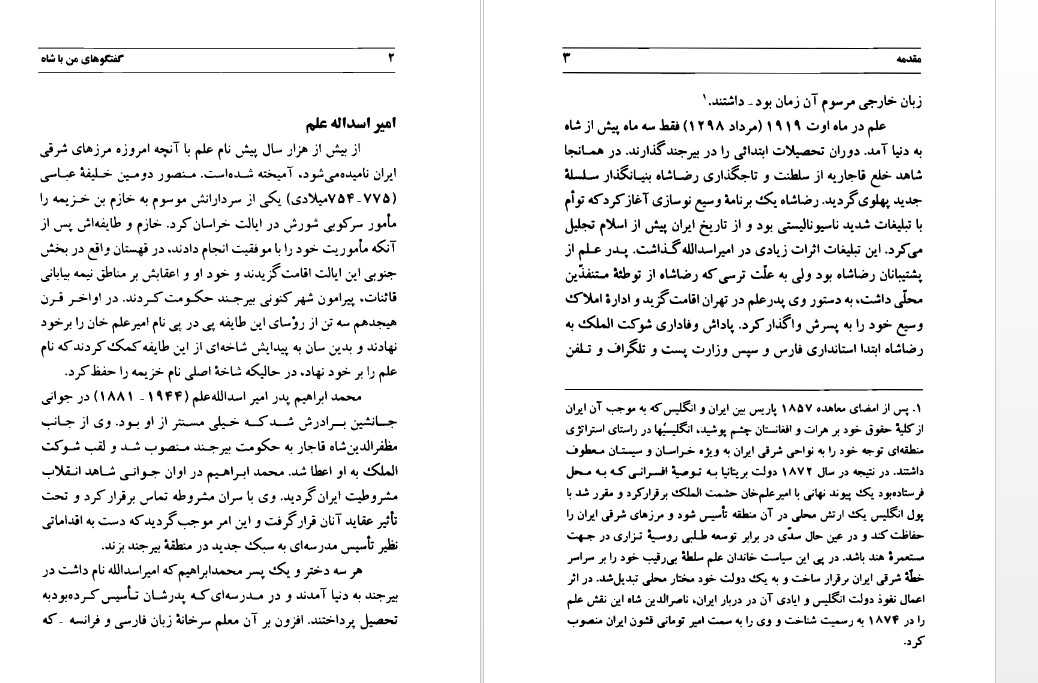 گفتگوهای من با شاه ۲
امیر اسداله علم
از بیش از هزار سال پیش نام علم با آنچه امروزه مرزهای شرقی
ایران نامیده‌می‌شود، آمیخته شده‌است. منصور دومین خلیفهٔ عباسی
(۷۷۵-۷۵۴میلادی) یکی از سردارانش موسوم به خازم بن خزیمه را
مأمور سرکوبی شورش در ایالت خراسان کرد. خازم و طایفه‌اش پس از
آنکه مأموریت خود را با موفقیت انجام دادند، در قهستان واقع در بخش
جنوبی این ایالت اقامت‌گزیدند و خود او و اعقابش بر مناطق نیمه بیابانی
قائنات، پیرامون شهر کنونی بیرجند حکومت‌کردند. در اواخر قرن
هیجدهم سه تن از رؤسای این طایفه پی در پی نام امیرعلم خان را برخود
نهادند و بدین سان به پیدایش شاخه‌ای از این طایفه کمک کردند که نام
علم را بر خود نهاد، در حالیکه شاخهٔ اصلی نام خزیمه را حفظ‌کرد.
محمد ابراهیم پدر امیر اسدالله‌علم (۱۹۴۴- ۱۸۸۱) در جوانی
جانشین برادرش شد که خیلی مسنتر از او بود. وی از جانب
مظفرالدین‌شاه قاجار به حکومت بیرجند منصوب شد و لقب شوکت
الملک به او اعطا شد. محمد ابراهیم در اوان جوانی شاهد انقلاب
مشروطیت ایران گردید. وی با سران مشروطه تماس برقرار کرد و تحت
تأثیر عقاید آنان قرارگرفت و این امر موجب‌گردید که دست به اقداماتی
نظیر تأسیس مدرسه‌ای به سبک جدید در منطقهٔ بیرجند بزند.
هر سه دختر و یک پسر محمدابراهیم که امیراسدالله نام داشت در
بیرجند به دنیا آمدند و در مدرسه‌ای که پدرشان تأسیس کرده‌بودبه
تحصیل پرداختند. افزون بر آن معلم سرخانهٔ زبان فارسی و فرانسه -که
مقدمه ۳
زبان خارجی مرسوم آن زمان بود- داشتند.۱
علم در ماه اوت ۱۹۱۹ (مرداد ۱۲۹۸) فقط سه ماه پیش از شاه
به دنیا آمد. دوران تحصیلات ابتدائی را در بیرجند گذارند. در همانجا
شاهد خلع قاجاریه از سلطنت و تاجگذاری رضاشاه بنیانگذار سلسلهٔ
جدید پهلوی‌گردید. رضاشاه یک برنامهٔ وسیع نوسازی آغاز کرد که توأم
با تبلیغات شدید ناسیونالیستی بود و از تاریخ ایران پیش از اسلام تجلیل
می‌کرد. این تبلیغات اثرات زیادی در امیراسدالله گذاشت. پدر علم از
پشتیبانان رضاشاه بود ولی به علّت ترسی که رضاشاه از توطئهٔ متنفذّین
محلّی داشت، به دستور وی پدرعلم در تهران اقامت‌گزید و ادارهٔ املاک
وسیع خود را به پسرش واگذار کرد. پاداش وفاداری شوکت الملک به
رضاشاه ابتدا استانداری فارس و سپس وزارت پست و تلگراف و تلفن
۱. پس از امضای معاهده ۱۸۵۷ پاریس بین ایران و انگلیس که به موجب آن ایران
از کلیهٔ حقوق خود بر هرات و افغانستان چشم پوشید، انگلیسیُها در راستای استراتژی
منطقه‌ای توجه خود را به نواحی شرقی ایران به ویژه خراسان و سیستان معطوف
داشتند. در نتیجه در سال ۱۸۷۲ دولت بریتانیا به توصیهٔ افسرانی که به محل
فرستاده‌بود یک پیوند نهانی با امیرعلم‌خان حشمت الملک برقرارکرد و مقرر شد با
پول انگلیس یک ارتش محلی در آن منطقه تأسیس شود و مرزهای شرقی ایران را
حفاظت کند و در عین حال سدّی در برابر توسعه طلبی روسیهٔ تزاری در جهت
مستعمرهٔ هند باشد. در پی این سیاست خاندان علم سلطهٔ بی‌رقیب خود را بر سراسر
خطّهٔ شرقی ایران برقرار ساخت و به یک دولت خود مختار محلی تبدیل‌شد. در اثر
اعمال نفوذ دولت انگلیس و ایادی آن در دربار ایران، ناصرالدین شاه این نقش علم
را در ۱۸۷۴ به رسمیت شناخت و وی را به سمت امیر تومانی قشون ایران منصوب
کرد.